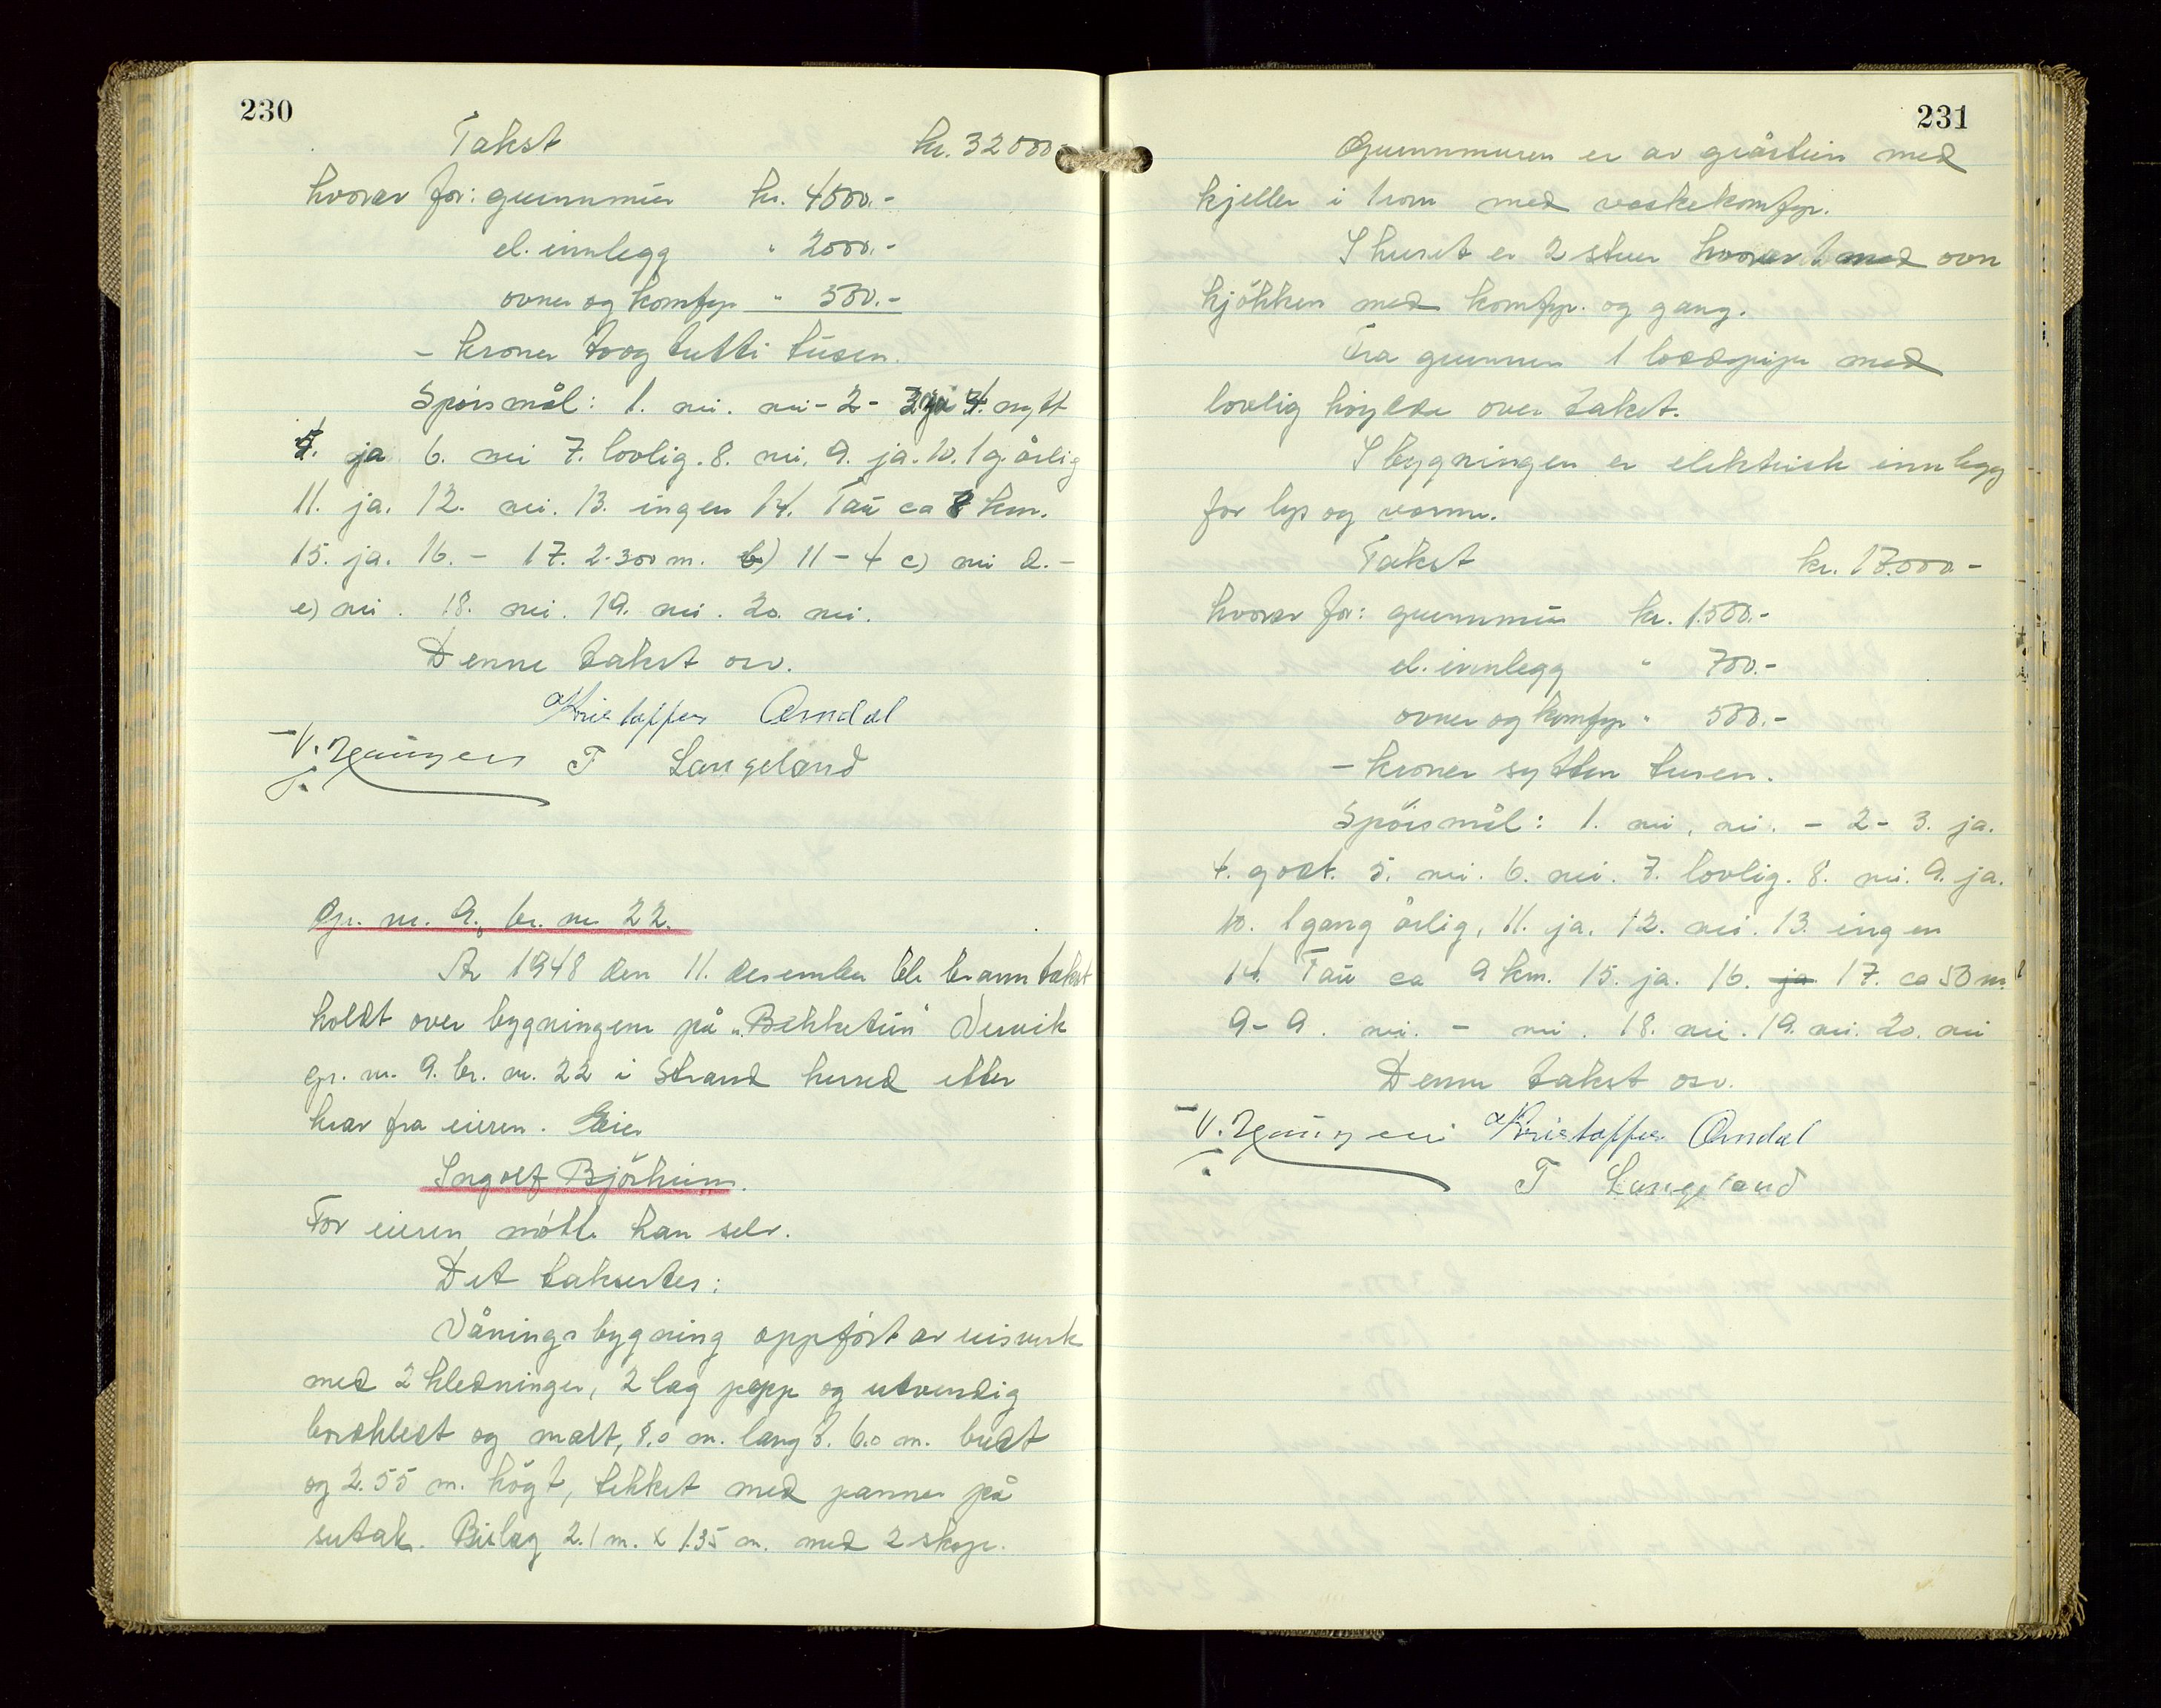 230
Takst kr. 32000.-
hvorav for: grunnmur kr. 4000.-
el. innlegg " 2000.-
ovner og komfyr " 500.-
- kroner toogtretti tusen.
Spörsmål: 1. nei. nei - 2 - 3 ja 4. nytt
5. ja 6. nei 7. lovlig. 8. nei. 9. ja. 10. 1 g. årlig
11. ja. 12. nei. 13. ingen 14. Tau ca 8 km.
15. ja. 16. - 17. 2-300 m. b) 11 - 4 c) nei d. -
e) nei. 18. nei. 19. nei. 20. nei.
Denne takst osv.
Kristoffer Arndal
T Langeland
Gr. nr. 9, br. nr 22.
År 1948 den 11. desember ble branntakst
holdt over bygningene på "Bekketun" Vervik
gr. nr. 9. br. nr. 22 i Strand herred etter
krav fra eieren. Eier
Ingolf Björheim.
For eieren mötte han selv.
Det taksertes:
Våningsbygning oppfört av reisverk
med 2 kledninger, 2 lag papp og utvendig
bordkledt og malt, 8.0 m. lang t. 6.0 m. bredt
og 2.55 m. högt, tekket med panner på
sutak. Bislag 2.1 m. x 1.35 m. med 2 skap.
231
Grunnmuren er av gråstein med
kjeller i 1 rom med vaskekomfyr.
I huset er 2 stuer hvorav 1 med ovn
kjökken med komfyr. og gang.
Fra grunnen 1 loddpipe med
lovlig höyde over taket.
I bygningen er elektrisk innlegg
for lys og varme.
Takst kr. 17.000-
hvorav for: grunnmur kr. 1.500.-
el. innlegg " 700.-
ovner og komfyr " 500.-
- kroner sytten tusen.
Spörsmål: 1. nei, nei. - 2 - 3. ja.
4. godt. 5. nei. 6. nei. 7. lovlig. 8. nei. 9. ja.
10. 1 gang årlig, 11. ja. 12. nei. 13. ingen
14. Tau ca 9 km. 15. ja. 16. ja 17. ca 50 m.
9-9. nei. - nei. 18. nei. 19. nei. 20. nei
Denne takst osv.
Kristoffer Arndal
T Langeland